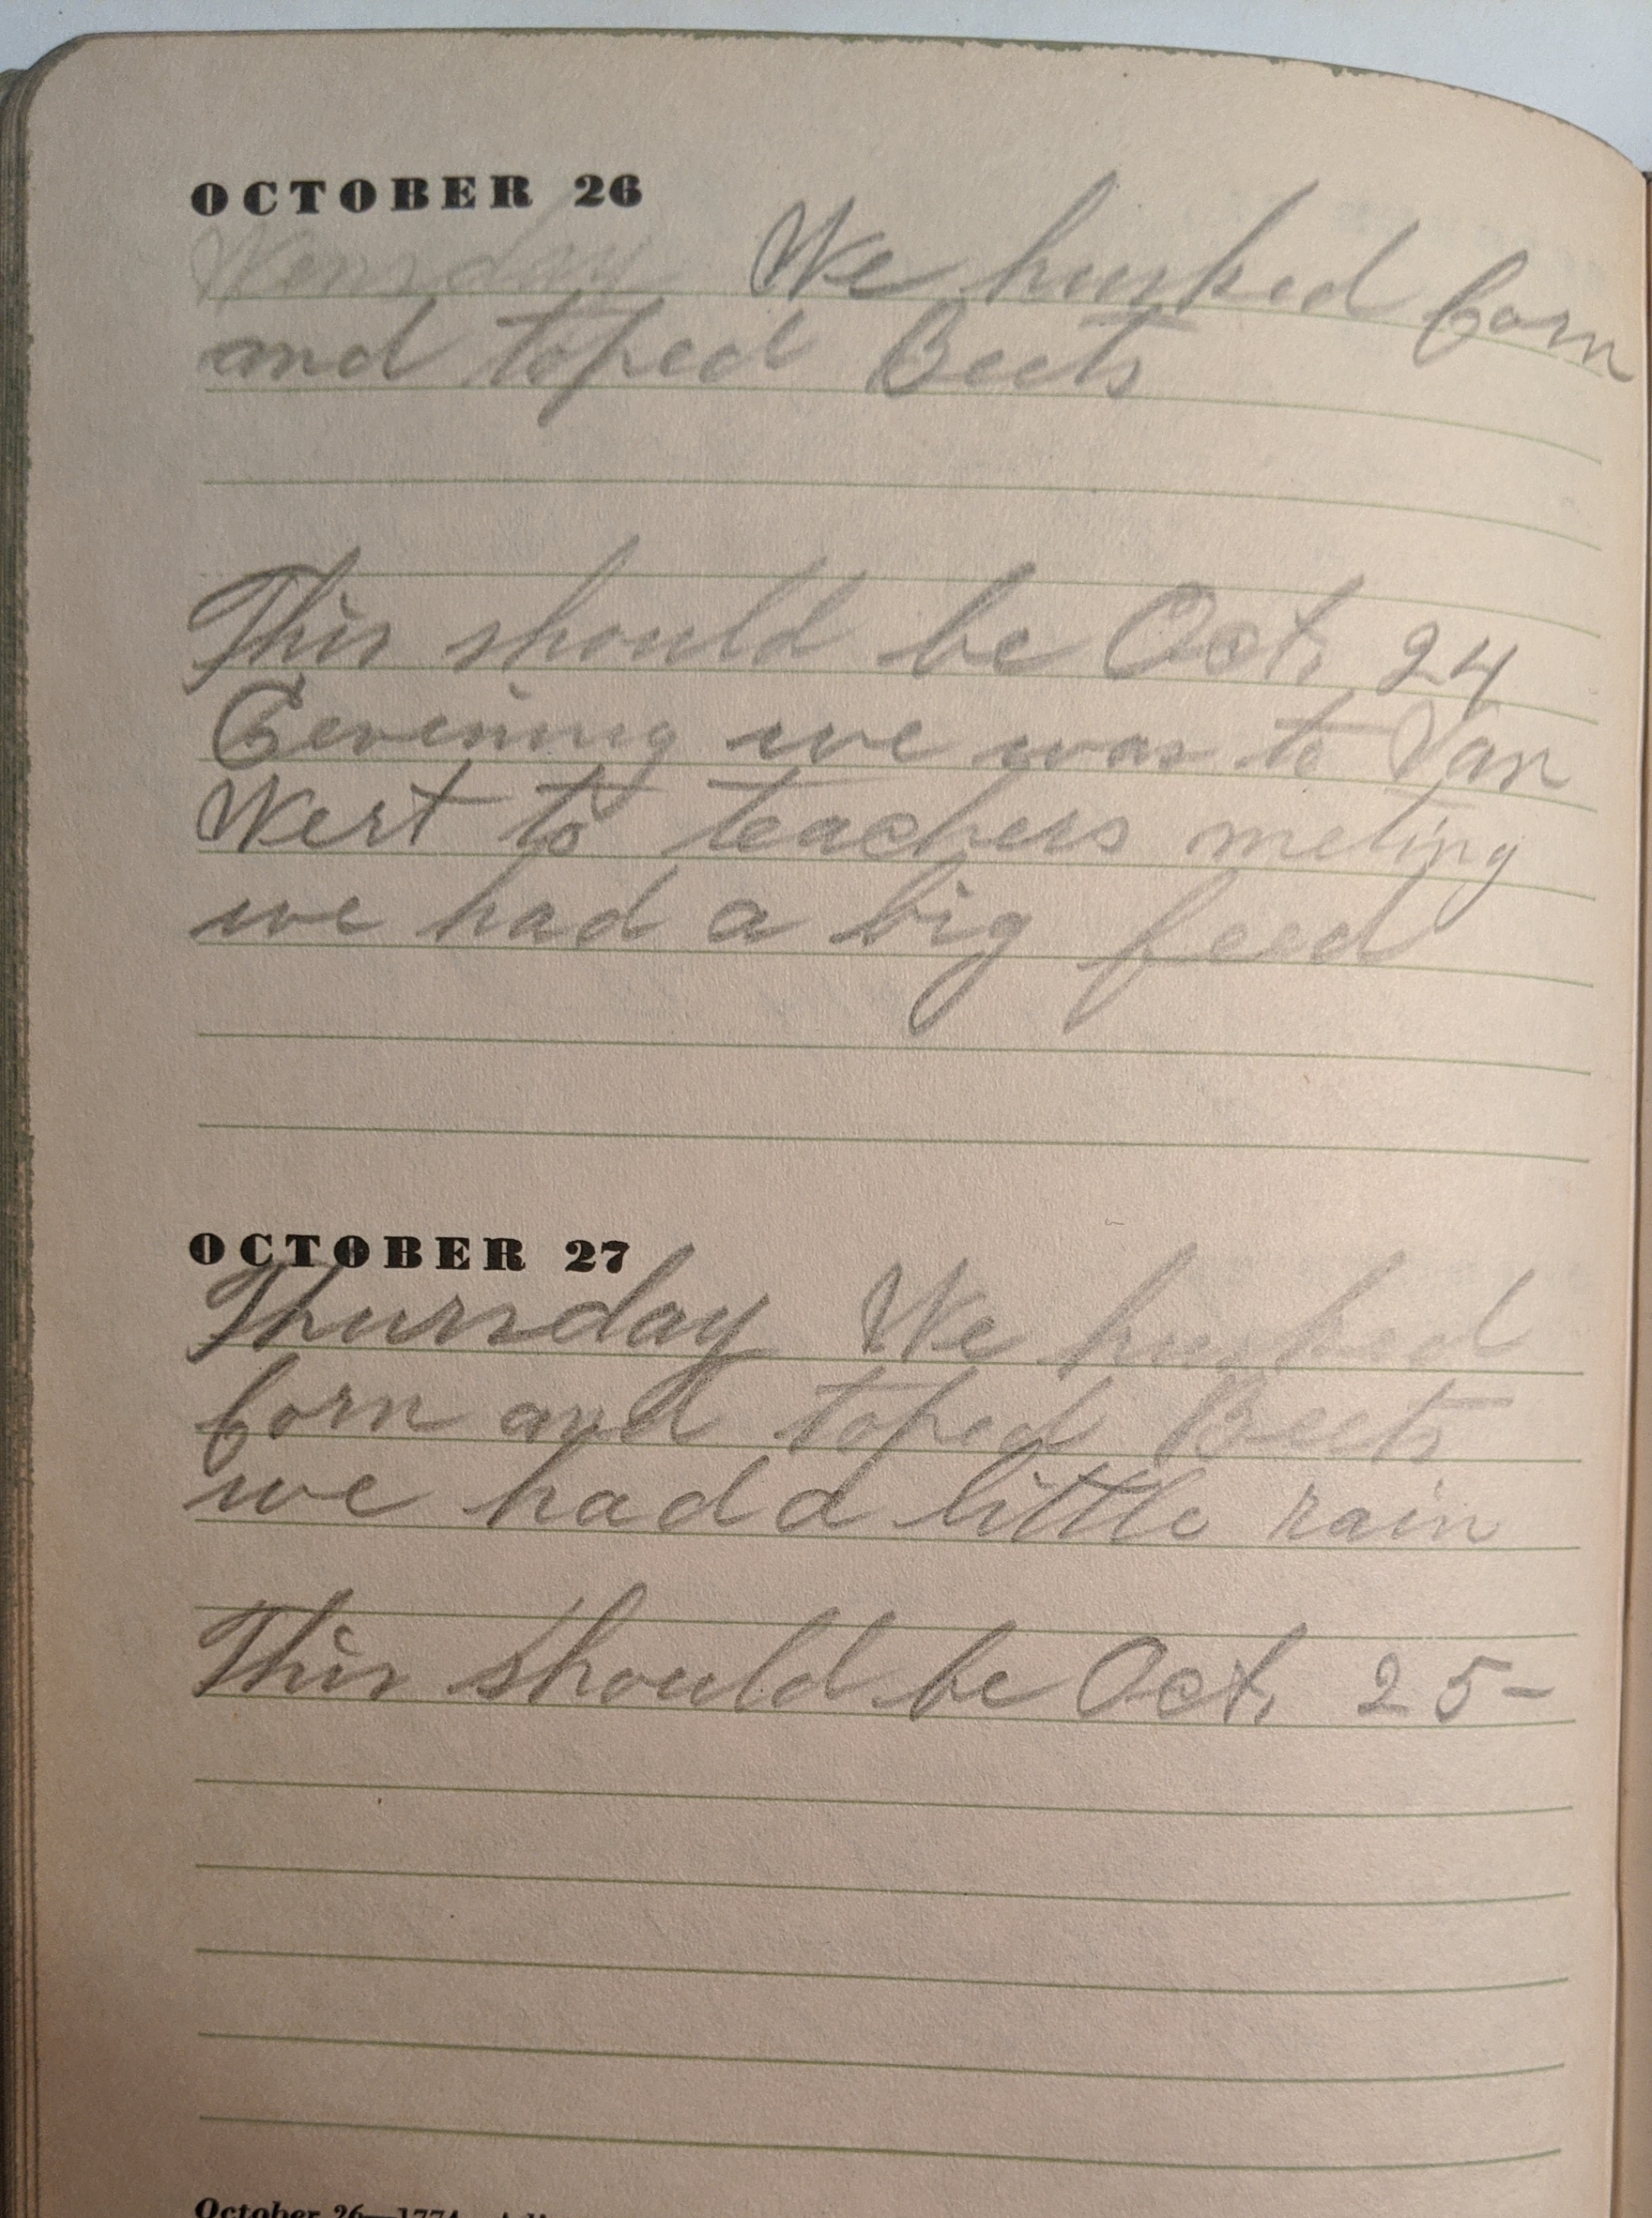 OCTOBER 26
Wensday We husked Corn
and toped Beets
This should be Oct. 24
Evening we was to Van
Wert to teachers meting
we had a big feed
OCTOBER 27
Thursday We husked
Corn and toped Beets
we had a little rain
This should be Oct. 25-
October 26—1774